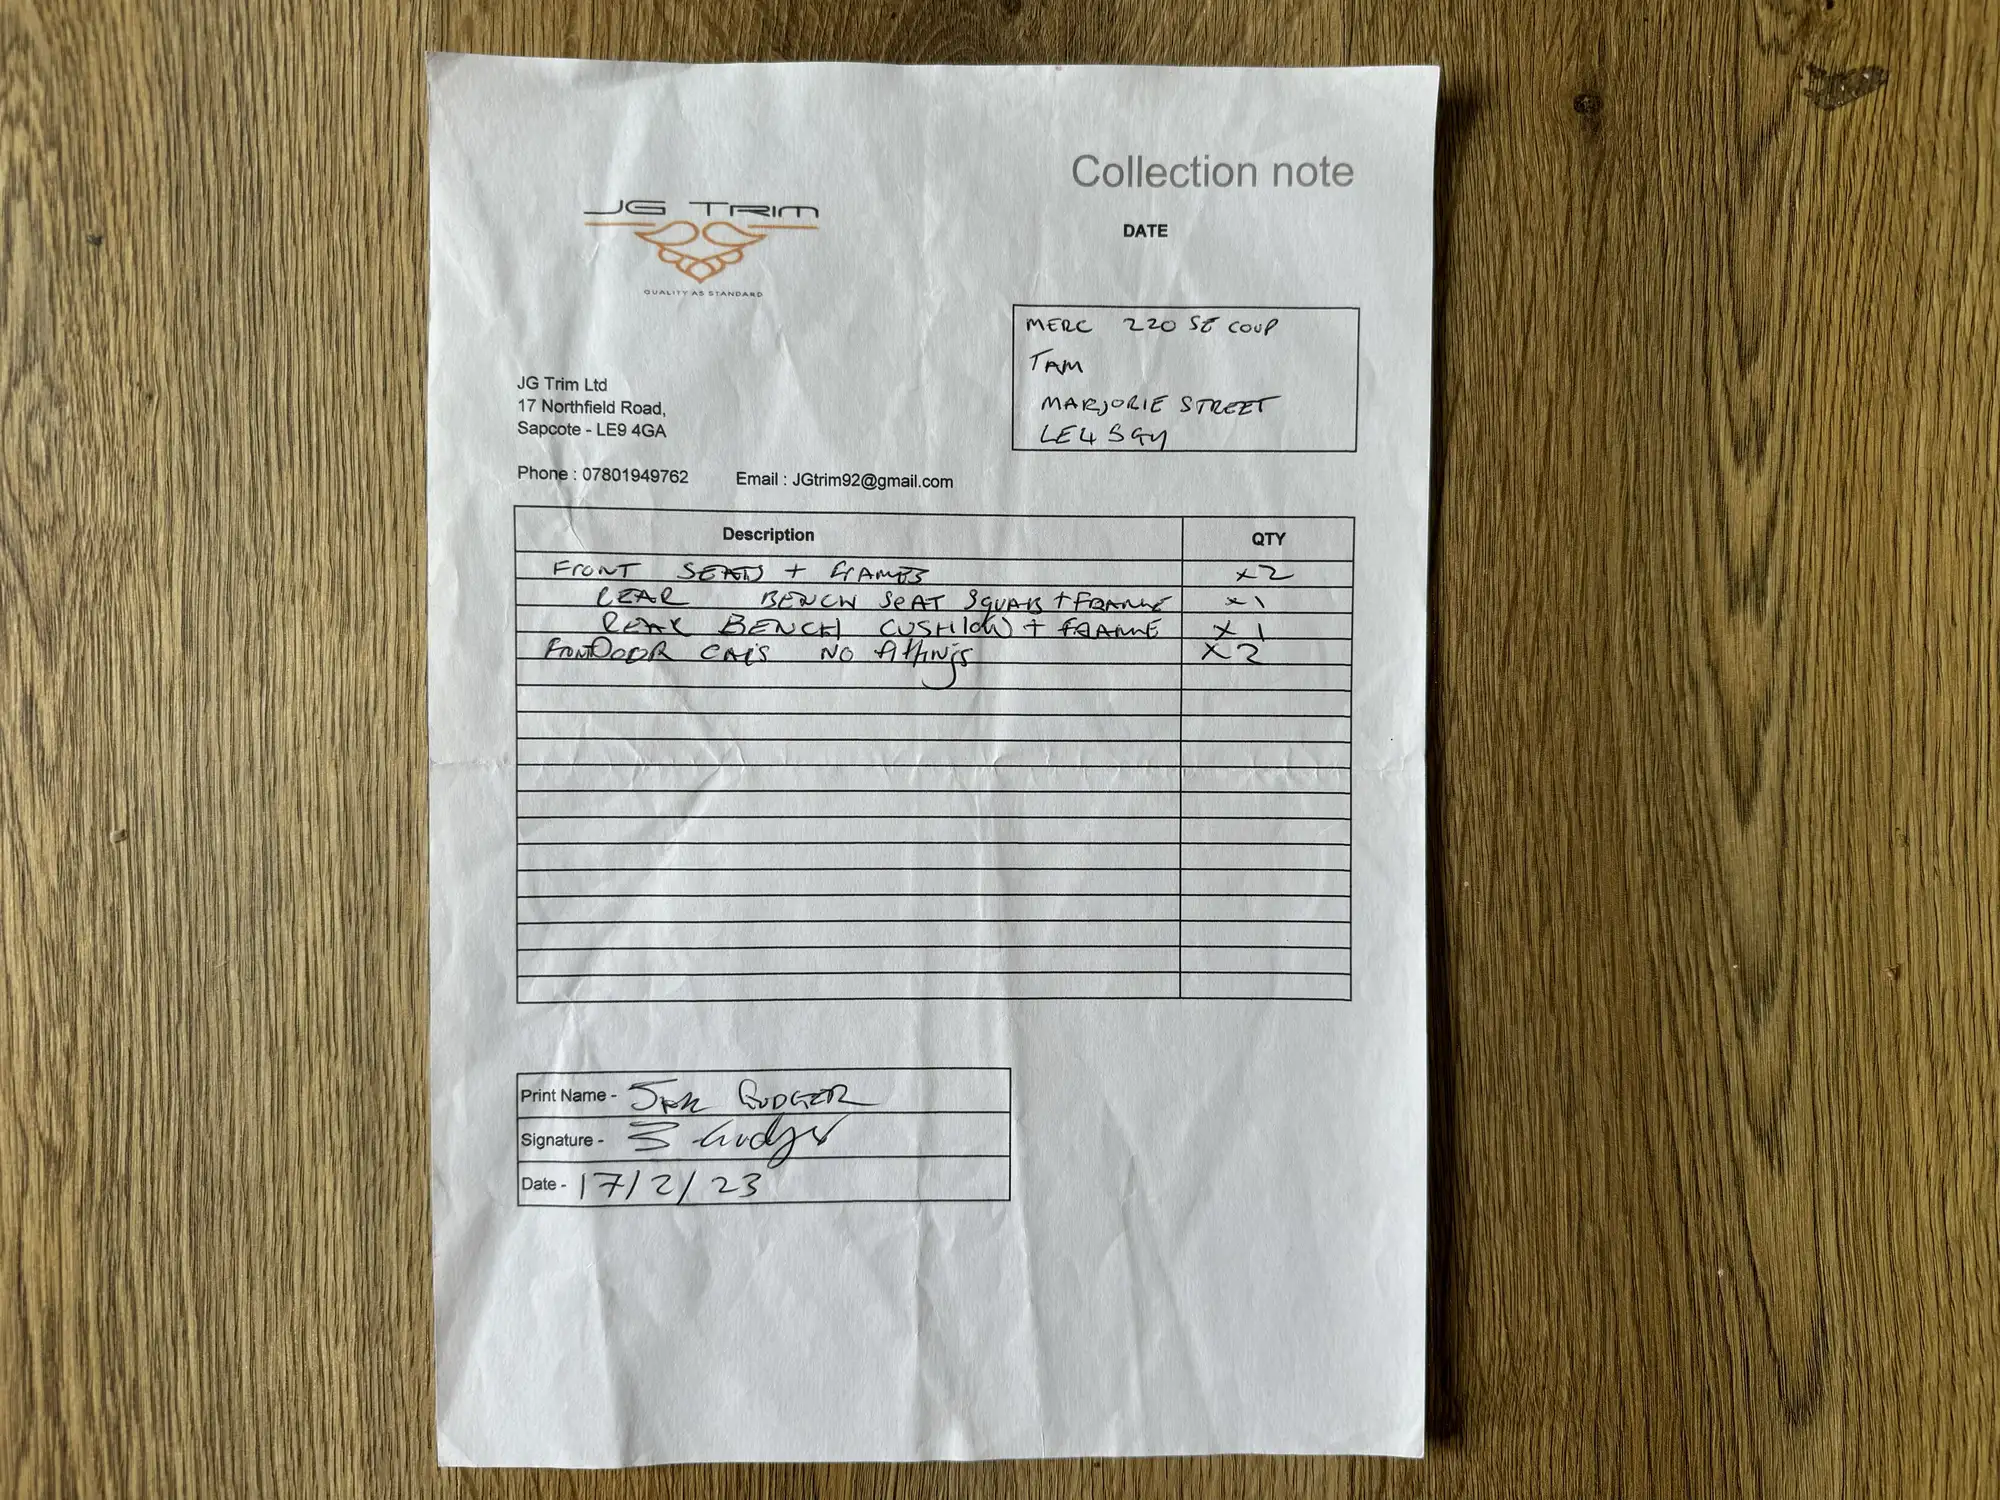 Collection note
JG TRIM
DATE
QUALITY AS STANDARD
MERC 220 SE COUP
TAM
MARJORIE STREET
LE4 5GY
JG Trim Ltd
17 Northfield Road,
Sapcote - LE9 4GA
Phone : 07801949762 Email : JGtrim92@gmail.com
Description QTY
FRONT SEATS + FRAMES x2
REAR BENCH SEAT SQUAB + FRAME x1
REAR BENCH CUSHION + FRAME x1
FRONT DOOR NO fittings x2
Print Name - GUDGER
Signature - Gudger
Date - 17/2/23